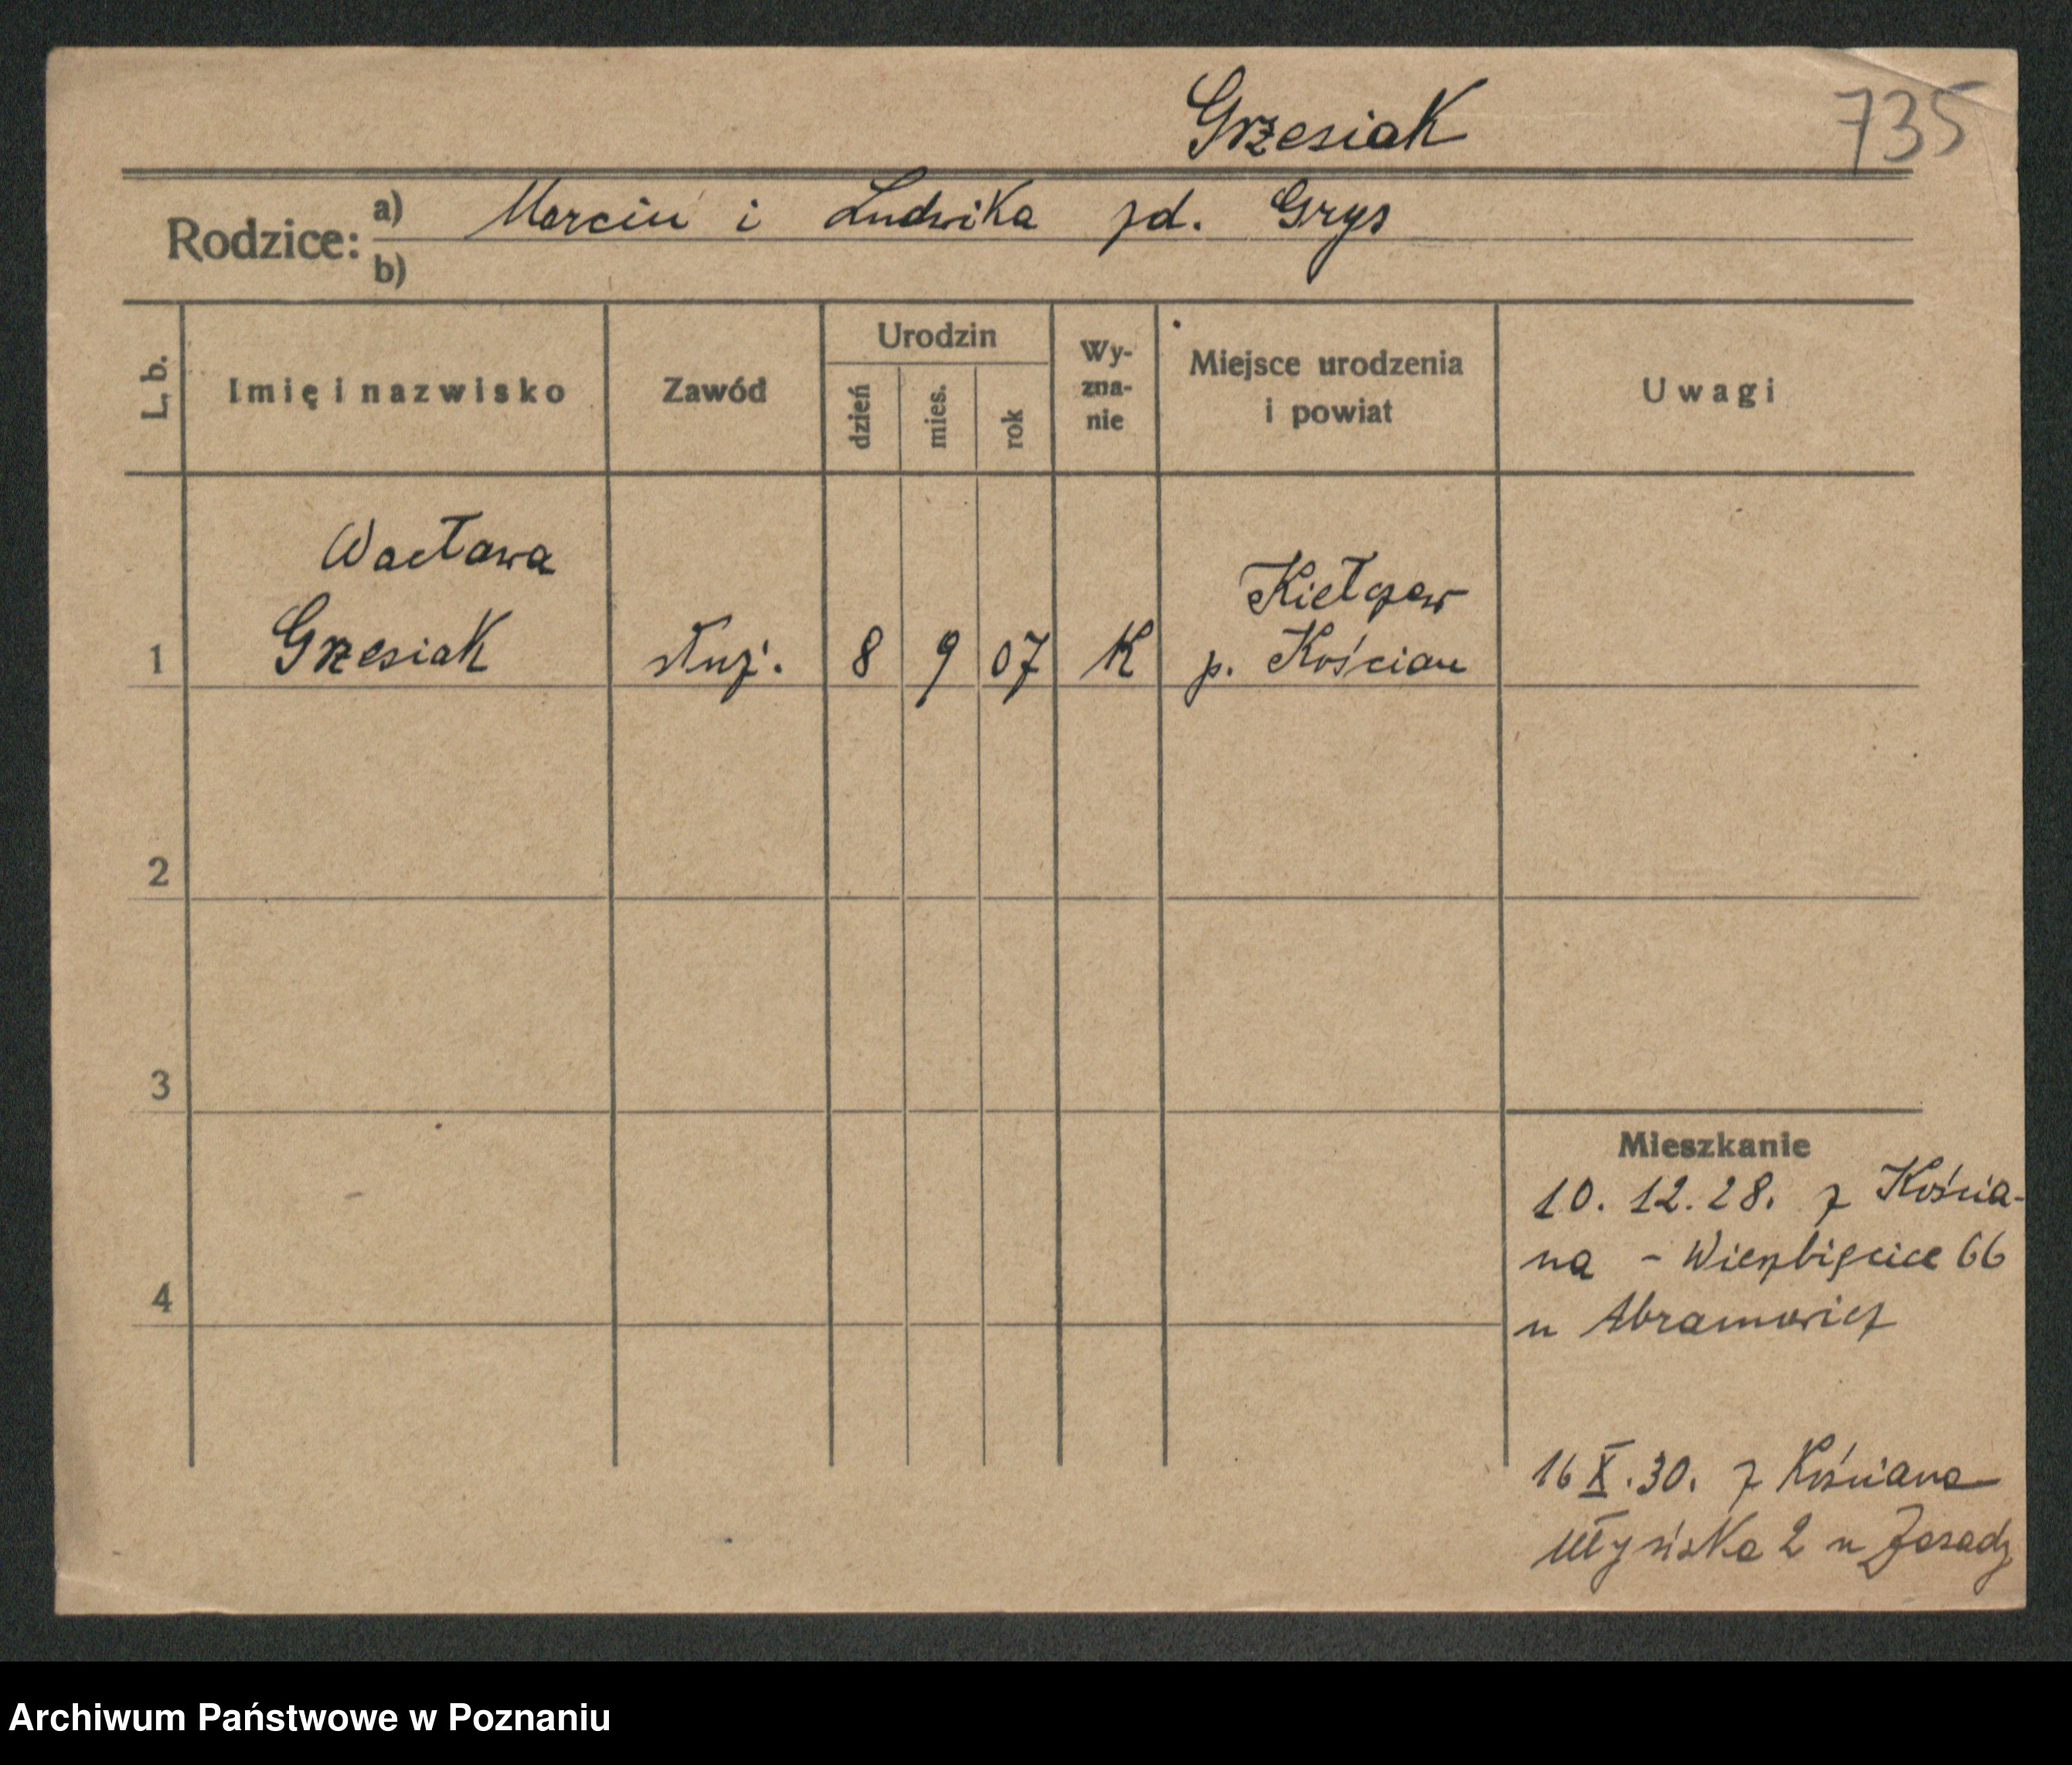 Grzesiak
735
Rodzice: a) Marcin i Ludwika zd. Grys
b)
L. b.
Imię i nazwisko
Zawód
Urodzin
dzień
mies.
rok
Wy-
zna-
nie
Miejsce urodzenia
i powiat
Uwagi
Wacława
Kiełczew
1 Grzesiak służ. 8 9 07 K p. Kościan
2
3
Mieszkanie
10. 12. 28. z Kościa-
na - Wierzbięcice 66
4
u Abramowicz
16 X. 30. z Kościana
2 u Zasady
Archiwum Państwowe w Poznaniu